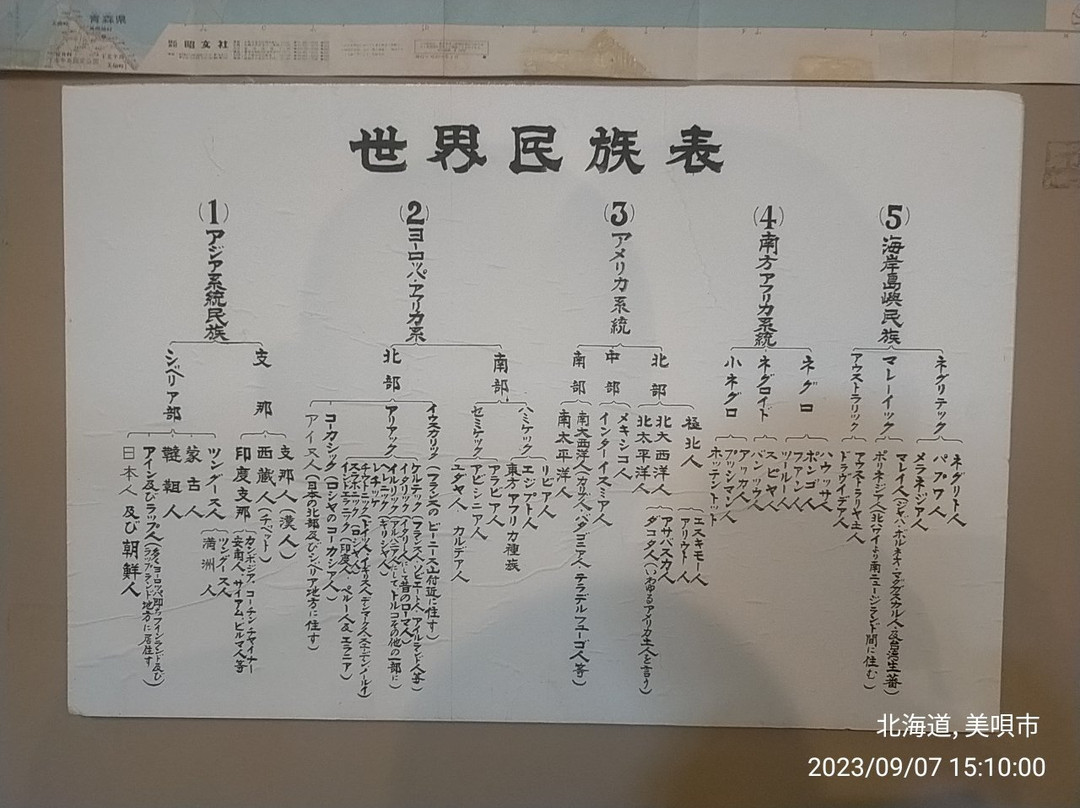 青森県
昭文社
世界民族表
(1)アジア系統民族
シベリア部
日本人及び朝鮮人
アイン及びラップ人
韃靼人
蒙古人
ツングース人
ツングース人
(満洲人)
支那
印度支那
(カンボジア、コーチン・チャイナー
安南人、サイアム・ビルマ人等)
西蔵人(チベット)
支那人(漢人)
(2)ヨーロッパ・アフリカ系
北部
アイヌ人(日本の北部及びシベリア地方に住す)
コーカシック(ロシヤのコーカシア人)
アリアック
インドエラニック(印度人、ペルー人&エラニア)
スラボニック(ロシヤ人)
チウトニック(ドイツ人・イギリス人・デンマーク人・スエーデン・ノールイ)
レチック
ヘレニック(ギリシヤ人)
イタリック(イタリー人にして昔のローマ人)
ケルテック(フランス人・ソビエート人・アイルランド人等)
イウスカリック(フランスのピーニース山付近に住す)
南部
セミケック
ユダヤ人 カルデア人
アラビア人
アビシニア人
ハミケック
東方アフリカ種族
エジプト人
リビア人
(3)アメリカ系統
南部
南太平洋人
南大西洋人(カリブ人・パタゴニア人 テラデルフューゴ人等)
中部
インターイスミア人
メキシコ人
北部
北太平洋人
北大西洋人
ダコタ人(いわゆるアメリカ土人と言う)
アサバスカ人
極北人
アリウート人
エスキモー人
(4)南方アフリカ系統
小ネグロ
ホッテントット
ブッシマン人
アッカ人
ネグロイド
バンツウ人
スビヤ人
ネグロ
ツールー人
ファン人
ボンゴ人
ハウッサ人
(5)海岸島嶼民族
アウストラリック
ドラウイデア人
アウストラリヤ土人
マレーイック
ポリネジア人(北ハワイより南ニュージランド間に住む)
マレイ人(ジャハ・ボルネオ・マダガスカル人・及台湾生蕃)
ネグリテック
メラネジア人
パプワ人
ネグリト人
北海道, 美唄市
2023/09/07 15:10:00